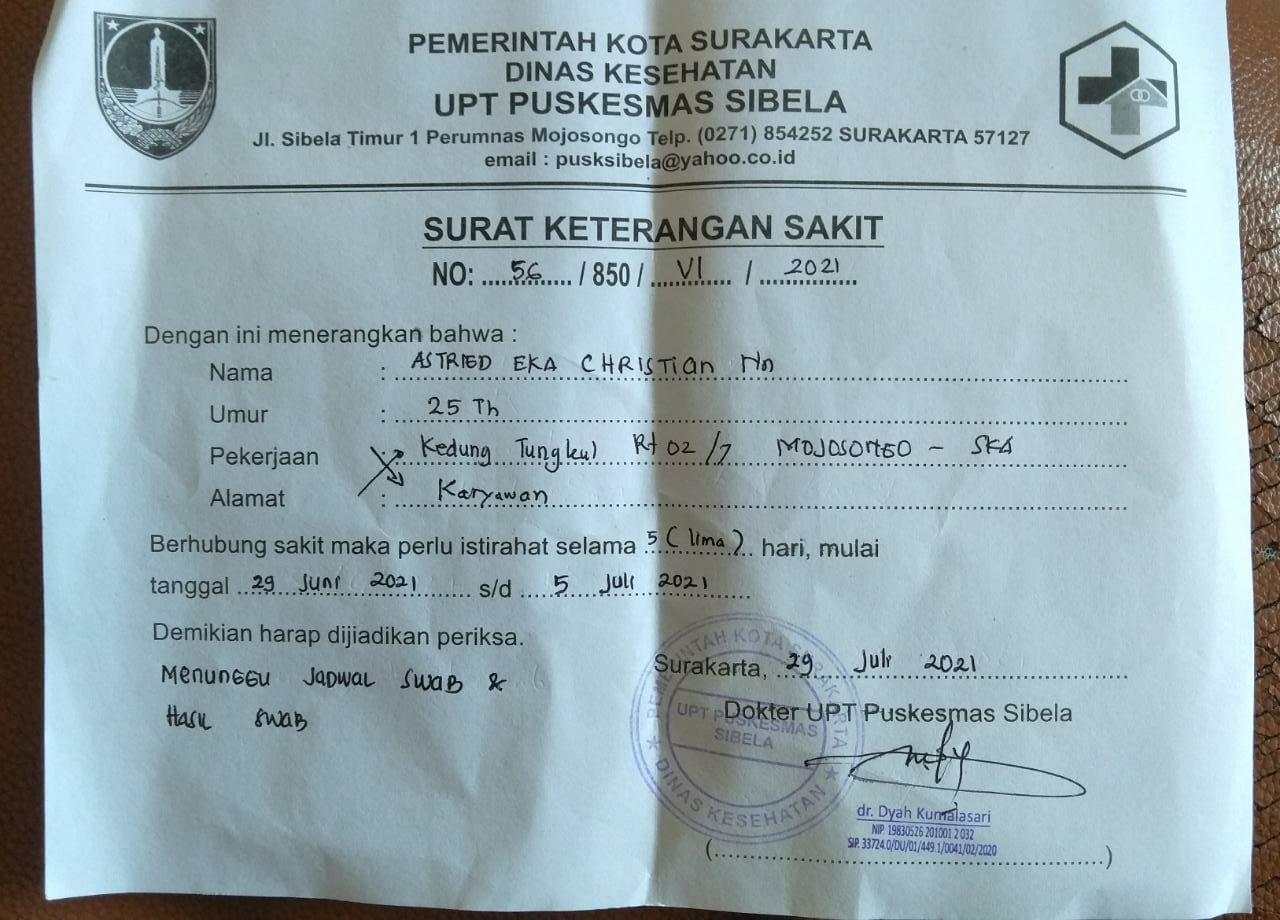 PEMERINTAH KOTA SURAKARTA
DINAS KESEHATAN
UPT PUSKESMAS SIBELA
Jl. Sibela Timur 1 Perumnas Mojosongo Telp. (0271) 854252 SURAKARTA 57127
email : pusksibela@yahoo.co.id
SURAT KETERANGAN SAKIT
NO: 56 / 850 / VI / 2021
Dengan ini menerangkan bahwa :
Nama : ASTRIED EKA CHRISTIAN
Umur : 25 Th
Pekerjaan : Kedung Tungkul Rt 02/7 MOJOSONGO - SKA
Alamat : Karyawan
Berhubung sakit maka perlu istirahat selama 5 (lima) hari, mulai
tanggal 29 Juni 2021 s/d 5 Juli 2021
Demikian harap dijiadikan periksa.
MENUNGGU JADWAL SWAB &
HASIL SWAB
Surakarta, 29 Juli 2021
Dokter UPT Puskesmas Sibela
PEMERINTAH KOTA SURAKARTA
UPT PUSKESMAS
SIBELA
DINAS KESEHATAN
dr. Dyah Kumalasari
NIP 19830526 201001 2 032
SIP. 33724.0/DU/01/449.1/0041/02/2020
(........................................)